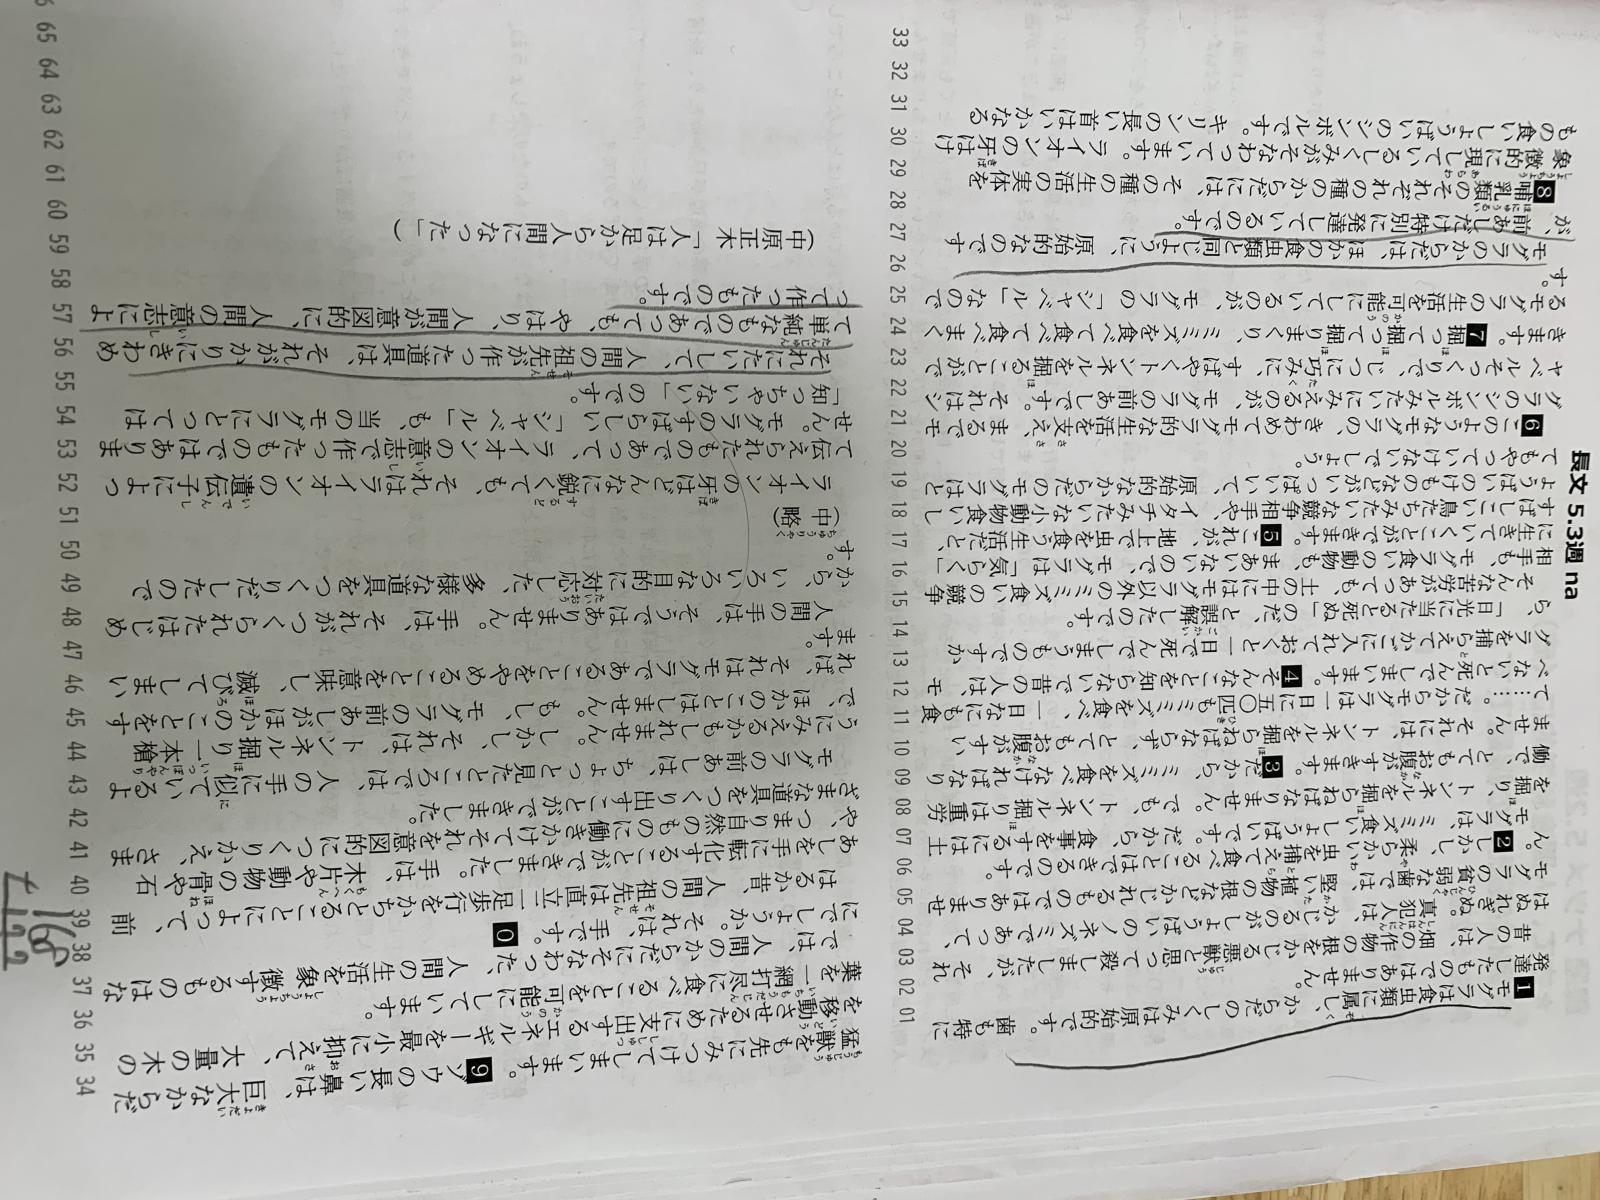 長文 5.3週 na
1モグラは食虫類に属し、からだのみくみは原始的です。歯も特に
発達したものではありません。
昔の人は、畑の作物の根をかじる悪獣と思って殺しましたが、それ
はぬれぎぬ。真犯人は、かじるのがしょうばいのノネズミであって、
モグラの貧弱な歯では、堅い植物の根などかじれるものではありませ
ん。2しかし、柔らかい虫を捕えて食べることはできるのです。
モグラは、ミミズ食いしょうばいです。だから、食事をするには土
を掘り、トンネルを掘らねばなりません。でも、トンネル掘りは重労
働で、とてもお腹がすきます。3だから、ミミズを食べなければなり
ません。それには、トンネルを掘らねばならず、とてもお腹がすい
て……。だからモグラは一日に五〇匹もミミズを食べ、一日なにも食
べないと死んでしまいます。4そんなことを知らないで昔の人は、モ
グラを捕らえてかごに入れておくと一日で死んでしまうものですか
ら、「日光に当たると死ぬ」のだ、と誤解したのです。
そんな苦労があっても、土の中にはモグラ以外のミミズ食いの競争
相手も、モグラ食いの動物も、まあいないので、モグラは「気らく」
に生きていくことができます。5これが、地上で虫を食う生活だと、
すばしこい鳥たちみたいな競争相手や、イタチみたいな小動物食いし
ょうばいのけものなどがいっぱいいて、原始的なからだのモグラはと
てもやっていけないでしょう。
6このようなモグラの、きわめてモグラ的な生活を支え、まるでモ
グラのシンボルみたいにみえるのが、モグラの前あしです。それはシ
ャベルそっくりで、じつに巧みに、すばやくトンネルを掘ることがで
きます。7掘って掘って掘りまくり、ミミズを食べて食べて食べまく
るモグラの生活を可能にしているのが、モグラの「シャベル」なので
す。
モグラのからだは、ほかの食虫類と同じように、原始的なのです
が、前あしだけ特別に発達しているのです。
8哺乳類のそれぞれの種のからだには、その種の生活の実体を
象徴的に現しているしくみがそなわっています。ライオンの牙はけ
もの食いしょうばいのシンボルです。キリンの長い首はいかなる
01 02 03 04 05 06 07 08 09 10 11 12 13 14 15 16 17 18 19 20 21 22 23 24 25 26 27 28 29 30 31 32 33
猛獣をも先にみつけてしまいます。9ゾウの長い鼻は、巨大なからだ
を移動させるために支出するエネルギーを最小に抑えて、大量の木の
葉を一網打尽に食べることを可能にしています。
では、人間のからだにそなわった、人間の生活を象徴するものはな
にでしょうか。それは、手です。0
はるか昔、人間の祖先は直立二足歩行をかちとることによって、前
あしを手に転化することができました。手は、木片や動物の骨や石
や、つまり自然のものに働きかけてそれを意図的につくりかえ、さま
ざまな道具をつくり出すことができました。
モグラの前あしは、ちょっと見たところでは、人の手に似ているよ
うにみえるかもしれません。しかし、それは、トンネル掘り一本槍
で、ほかのことはしません。もし、モグラの前あしがほかのことをす
れば、それはモグラであることをやめることを意味し、滅びてしまい
ます。
人間の手は、そうではありません。手は、それがつくられたはじめ
から、いろいろな目的に対応した、多様な道具をつくりだしたので
す。
（中略）
ライオンの牙はどんなに鋭くても、それはライオンの遺伝子によっ
て伝えられたものであって、ライオンの意志で作ったものではありま
せん。モグラのすばらしい「シャベル」も、当のモグラにとっては
「知っちゃいない」のです。
それにたいして、人間の祖先が作った道具は、それがかりにきわめ
て単純なものであっても、やはり、人間が意図的に、人間の意志によ
って作ったものです。
（中原正木「人は足から人間になった」）
34 35 36 37 38 39 40 41 42 43 44 45 46 47 48 49 50 51 52 53 54 55 56 57 58 59 60 61 62 63 64 65